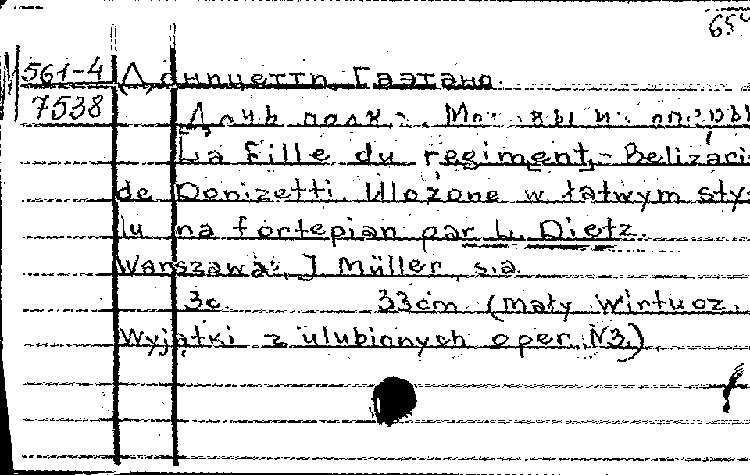 654
М 561-4 Доницетти, Гаэтано.
7538 Дочь полка. Мотивы из оперы
La Fille du regiment,- Belizaci
de Donizetti. Ułożone w łatwym sty
lu na fortepian par L. Dietz.
Warszawa: J Müller, s.a.
3c. 33cm (Mały Wirtuoz.
Wyjątki z ulubionych oper. N3)